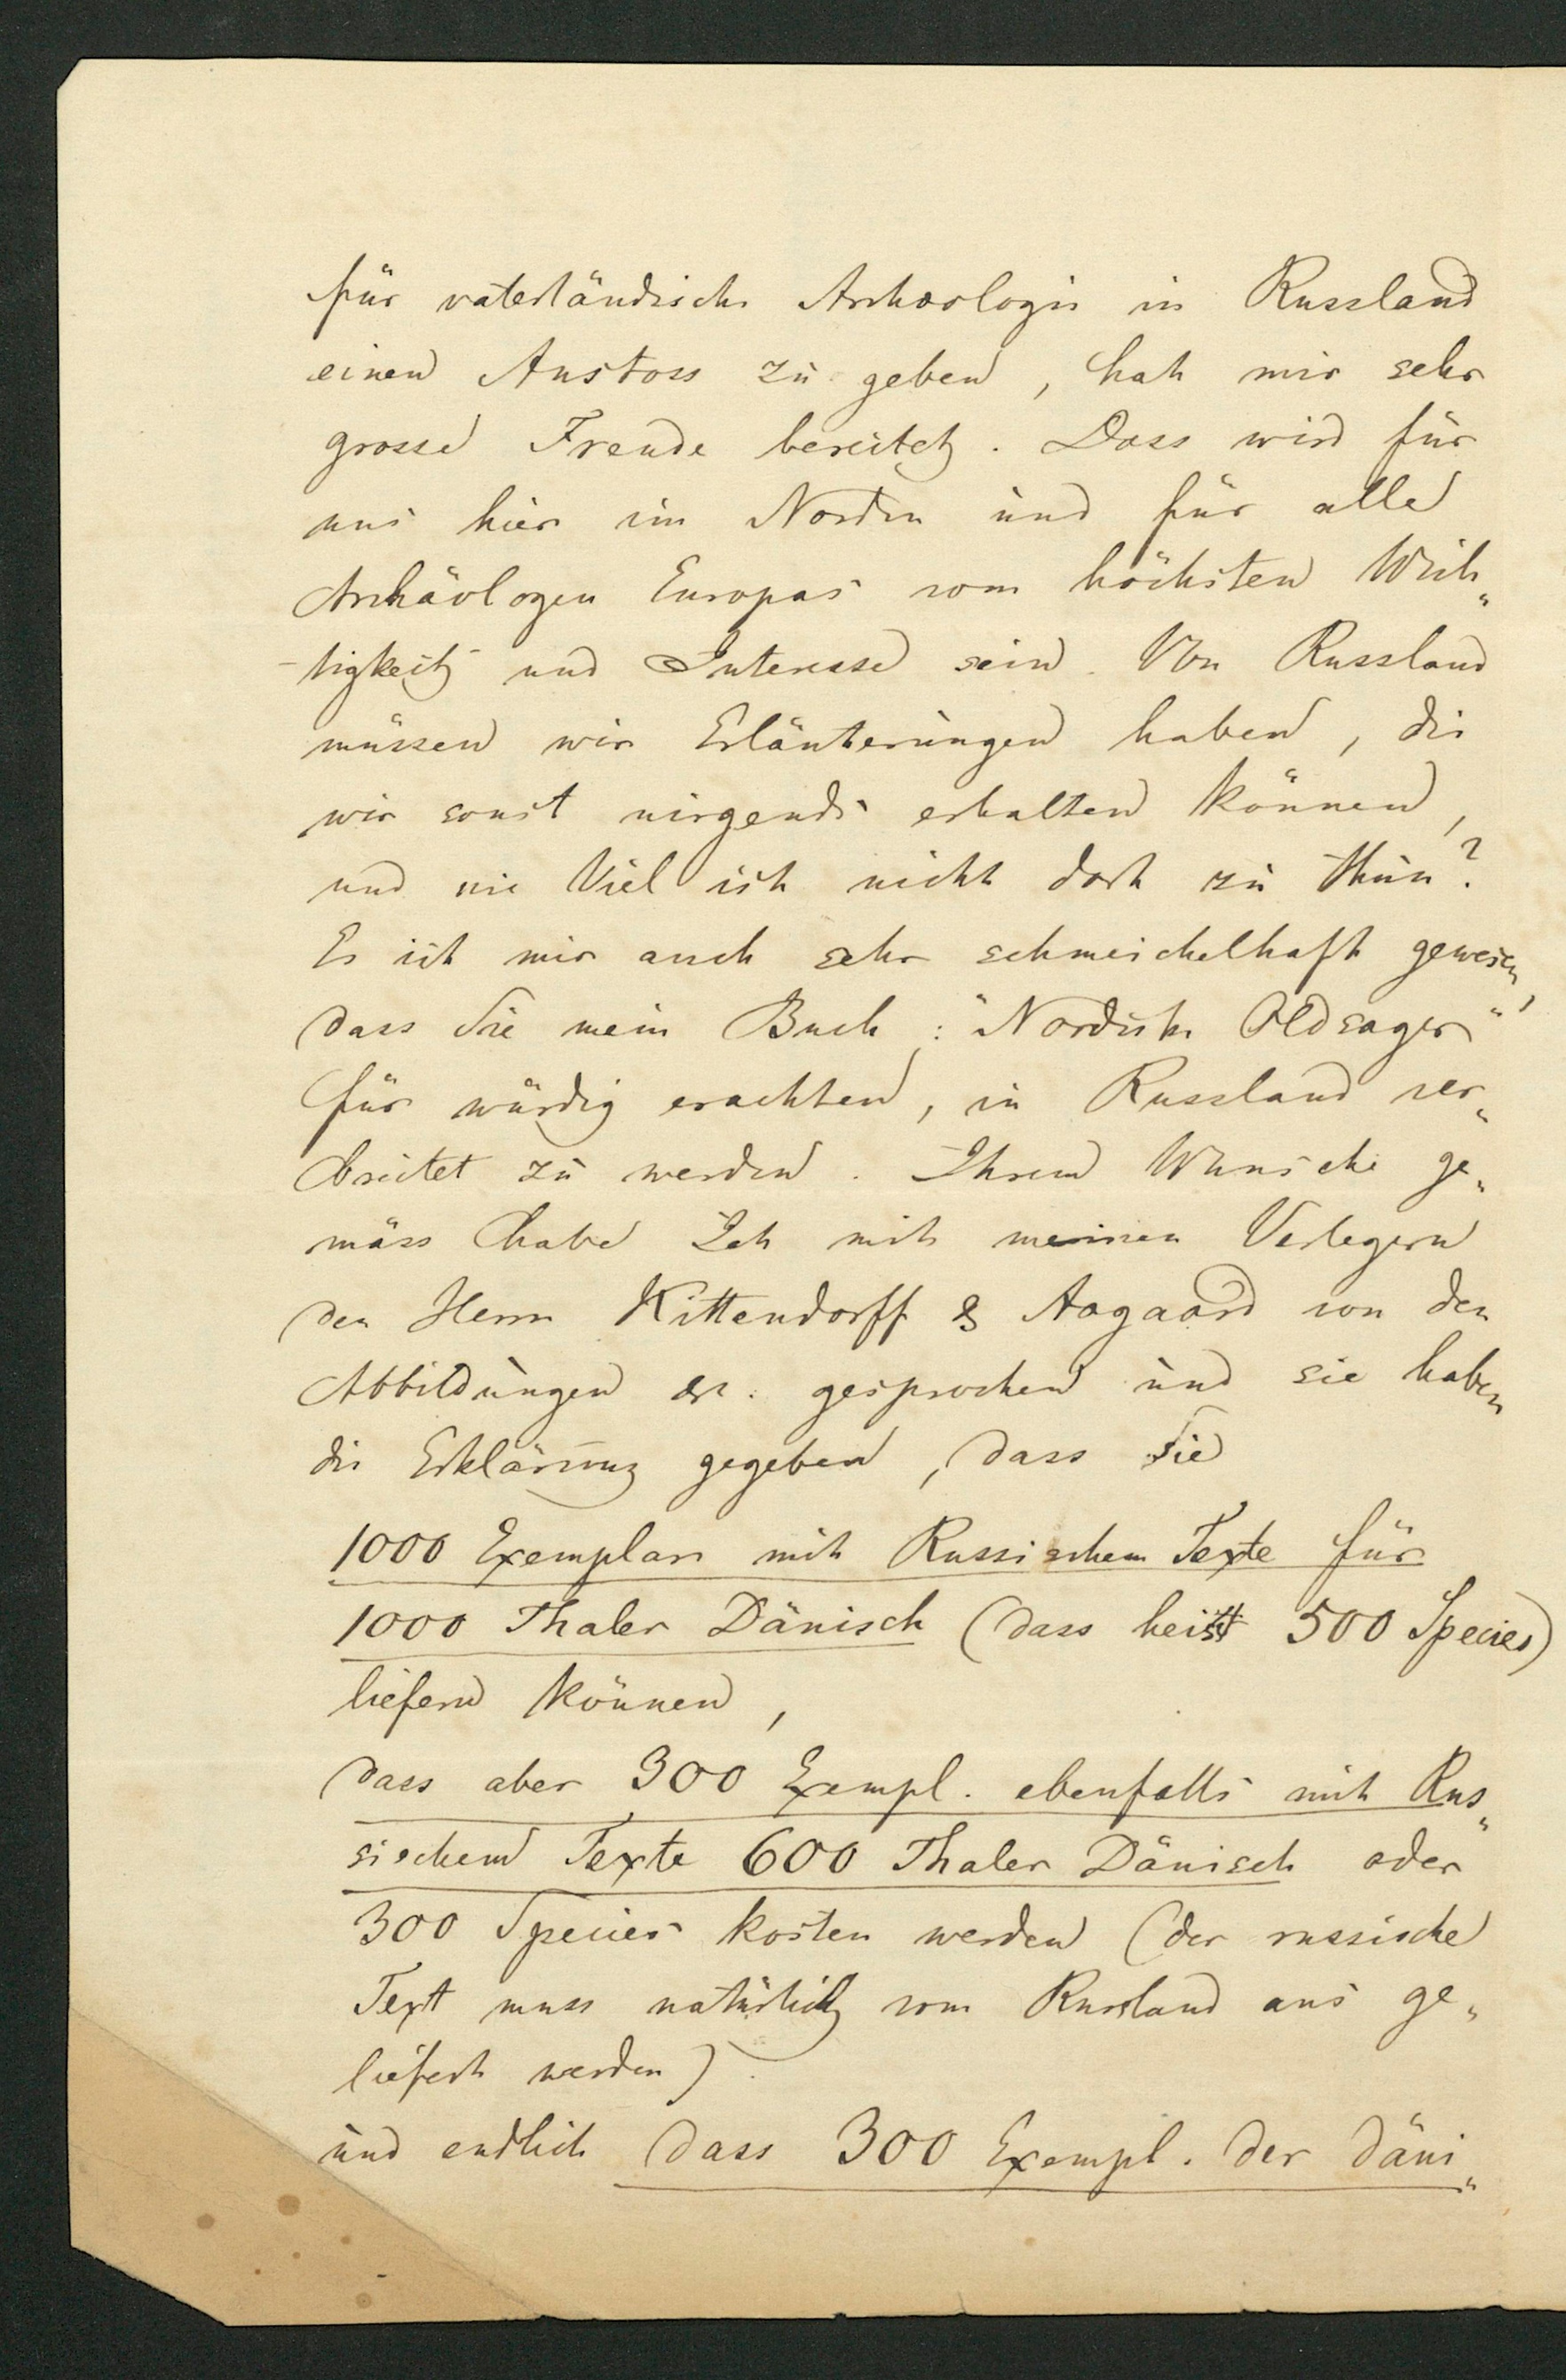 für vaterländische Archæologie in Russland
einen Anstoss zu geben, hat mir sehr
grosse Freude bereitet. Dass wird für
uns hier im Norden und für alle
Archäologen Europas vom höchsten Wich„
-tigkeit und Interesse sein. Von Russland
müssen wir Erläuterungen haben, die
wir sonst nirgends erhalten können,
und wie Viel ist nicht dort zu thun?
Es ist mir auch sehr schmeichelhaft gewesen,
dass Sie mein Buch: "Nordiske Oldsager"
für würdig erachten, in Russland ver„
breitet zu werden. Ihrem Wunsche ge„
mäss habe Ich mit meinen Verlegern
den Herrn Kittendorff & Aagaard von den
Abbildungen etc. gesprochen und sie haben
die Erklärung gegeben, dass Sie
1000 Exemplare mit Russischem Texte für
1000 Thaler Dänisch (dass heisst 500 Species)
liefern können,
dass aber 300 Exempl. ebenfalls mit Rus„
sischem Texte 600 Thaler Dänisch oder
300 Species kosten werden (der russische
Text muss natürlich vom Russland aus ge„
liefert werden).
und endlich dass 300 Exempl. der däni„